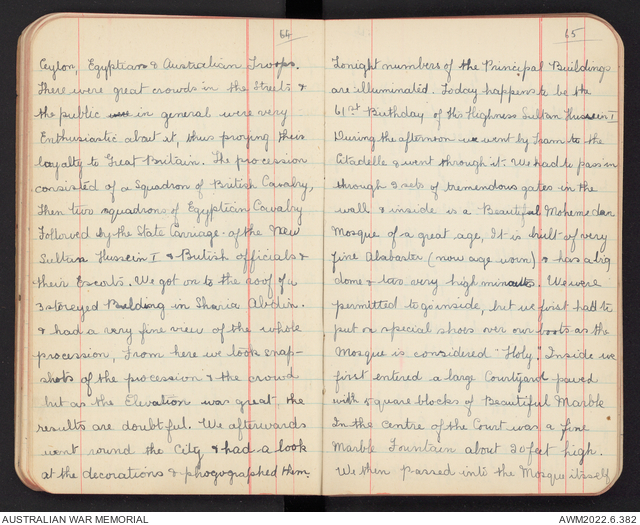 64
Ceylon, Egyptian & Australian Troops.
There were great crowds in the Streets &
the public in general were very
Enthusiastic about it, thus proving their
loyalty to Great Britain. The procession
consisted of a Squadron of British Cavalry,
then two squadrons of Egyptian Cavalry
Followed by the State Carriage of the New
Sultan Hussein I & British officials &
their Escorts. We got on to the roof of a
3 storeyed Building in Sharia Abdin.
& had a very fine view of the whole
procession, From here we took snap-
shots of the procession & the crowd
but as the Elevation was great the
results are doubtful. We afterwards
went round the City & had a look
at the decorations & phogographed them.
65
Tonight numbers of the Principal Buildings
are illuminated. Today happens to be the
61st Birthday of His Highness Sultan Hussein I
During the afternoon we went by Tram to the
Citadelle & went through it. We had to pass in
through 3 sets of tremendous gates in the
wall & inside is a Beautiful Mohemedan
Mosque of a great age, It is built of very
fine Alabaster (now age worn) & has a big
dome & two very high minaretts. We were
permitted to go inside, but we first had to
put on special shoes over our boots as the
Mosque is considered "Holy." Inside we
first entered a large Courtyard paved
with square blocks of Beautiful Marble
In the centre of the Court was a fine
Marble Fountain about 20 feet high.
We then passed into the Mosque itself
AUSTRALIAN WAR MEMORIAL
AWM2022.6.382